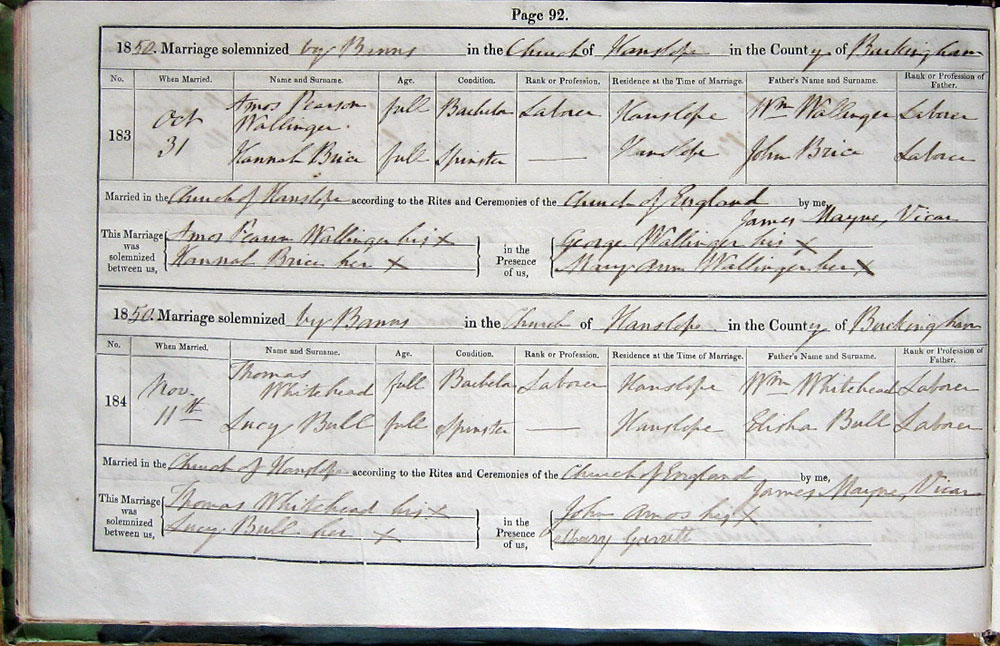 Page 92.
1850. Marriage solemnized by Banns in the Church of Hanslope in the County of Buckingham
No. When Married. Name and Surname. Age. Condition. Rank or Profession. Residence at the Time of Marriage. Father's Name and Surname. Rank or Profession of Father.
183 Oct 31 Amos Pearson Wallinger full Bachelor Laborer Hanslope Wm Wallinger Laborer
Hannah Brice full Spinster — Hanslope John Brice Laborer
Married in the Church of Hanslope according to the Rites and Ceremonies of the Church of England by me,
James Mayne, Vicar
This Marriage was solemnized between us, Amos Pearson Wallinger his X in the Presence of us, George Wallinger his X
Hannah Brice her X Mary Ann Wallinger her X
1850. Marriage solemnized by Banns in the Church of Hanslope in the County of Buckingham
No. When Married. Name and Surname. Age. Condition. Rank or Profession. Residence at the Time of Marriage. Father's Name and Surname. Rank or Profession of Father.
184 Nov. 11th Thomas Whitehead full Bachelor Laborer Hanslope Wm Whitehead Laborer
Lucy Bull full Spinster — Hanslope Elisha Bull Laborer
Married in the Church of Hanslope according to the Rites and Ceremonies of the Church of England by me,
James Mayne, Vicar
This Marriage was solemnized between us, Thomas Whitehead his X in the Presence of us, John Amos his X
Lucy Bull her X Mary Garrett